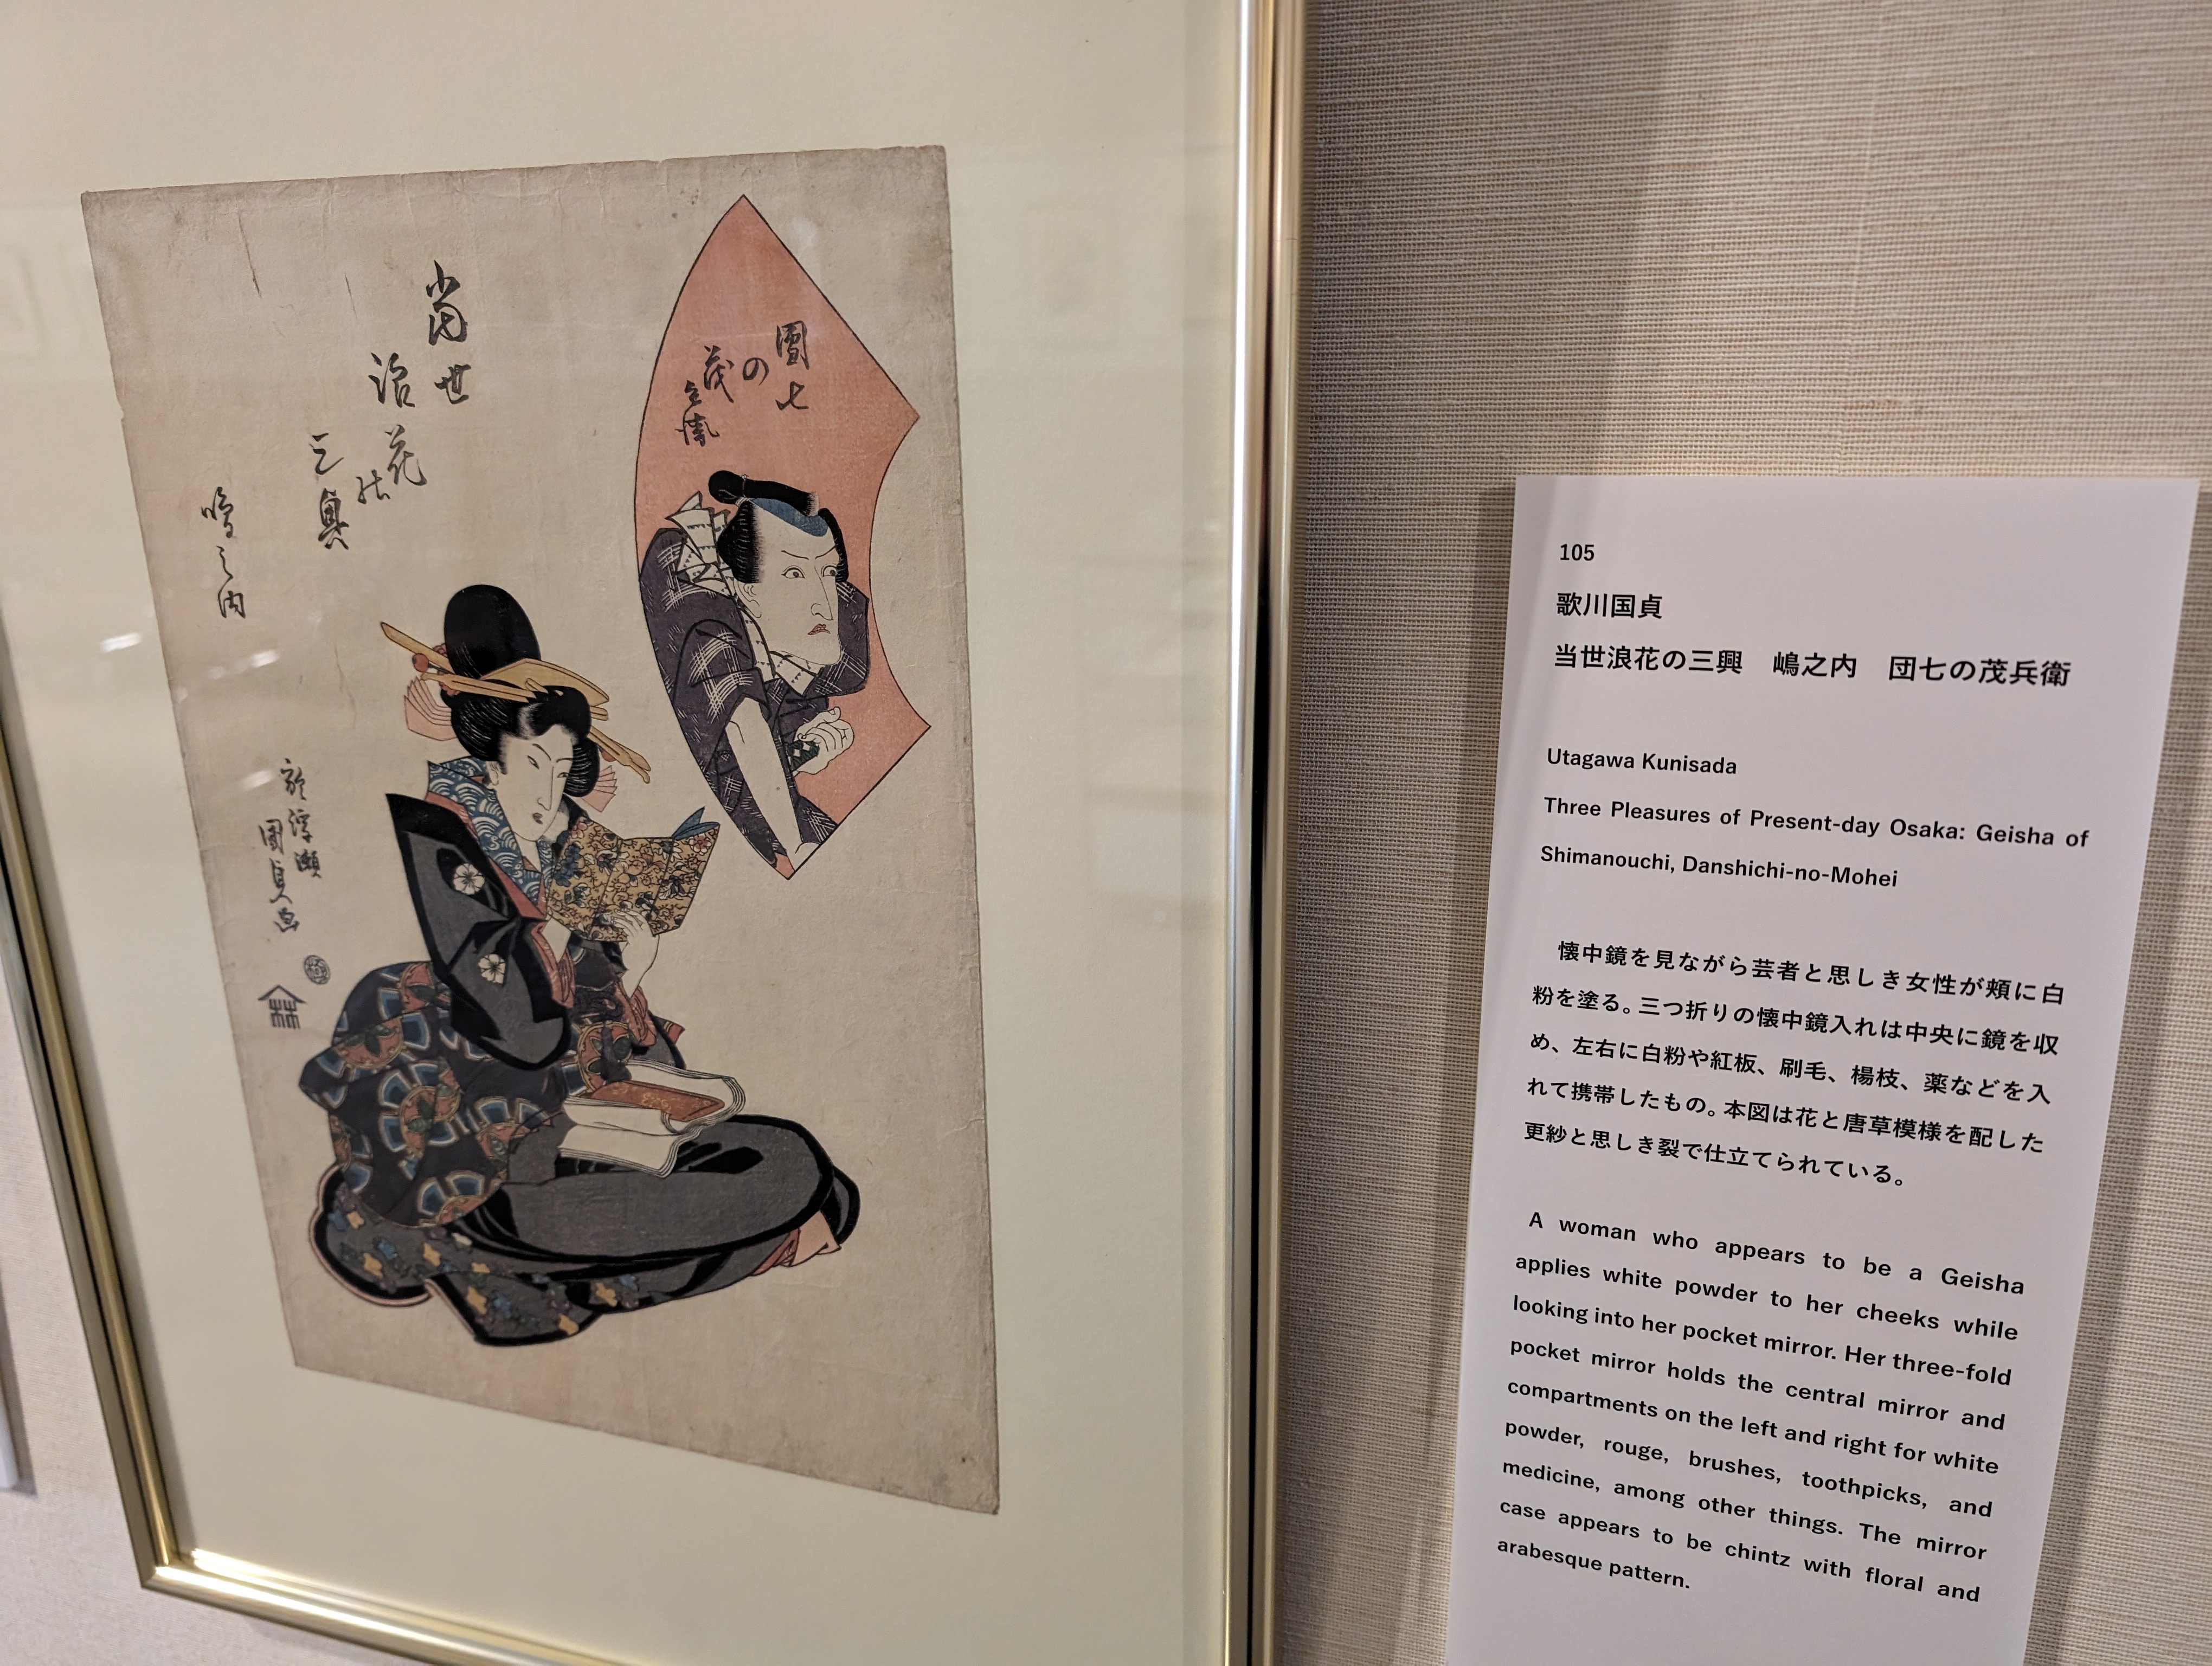 當世
浪花の
三興
嶋之内
團七
の
茂兵衛
於浮瀬
國貞画
極
105
歌川国貞
当世浪花の三興　嶋之内　団七の茂兵衛
Utagawa Kunisada
Three Pleasures of Present-day Osaka: Geisha of
Shimanouchi, Danshichi-no-Mohei
懐中鏡を見ながら芸者と思しき女性が頬に白
粉を塗る。三つ折りの懐中鏡入れは中央に鏡を収
め、左右に白粉や紅板、刷毛、楊枝、薬などを入
れて携帯したもの。本図は花と唐草模様を配した
更紗と思しき裂で仕立てられている。
A woman who appears to be a Geisha
applies white powder to her cheeks while
looking into her pocket mirror. Her three-fold
pocket mirror holds the central mirror and
compartments on the left and right for white
powder, rouge, brushes, toothpicks, and
medicine, among other things. The mirror
case appears to be chintz with floral and
arabesque pattern.